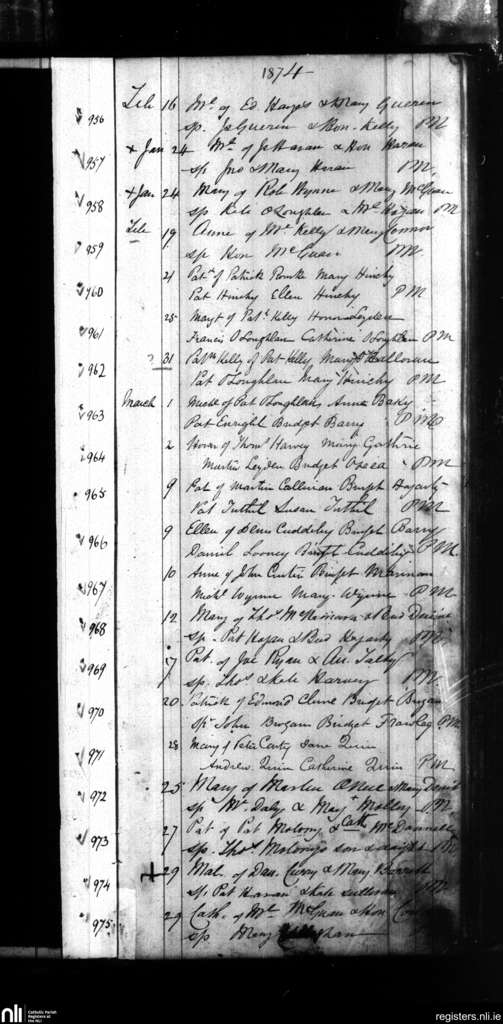 1874
956 Feb 16 Ml. of Ed. Hayes & Mary Guerin
sp. Js Guerin & Hon. Kelly PM
957 x Jan 24 Ml. of Js Haran & Hon Haran
sp Jno & Mary Haran PM
958 x Jan 24 Mary of Rob Wynne & Mary McGuan
sp Kate O'Loughlen & Ml Hogan PM
959 Feb 19 Anne of Ml Kelly & Mary Connor
sp Hon McGuan PM
960 21 Patk of Patrick Rourke Mary Hinchy
Pat Hinchy Ellen Hinchy PM
961 25 Magt of Patk Kelly Honor Leyden
Francis O'Loughlan Catherine O'Loghlen PM
962 ? 31 Patk Kelly of Pat Kelly Mary Halloran
Pat O'Loughlan Mary Hinchy PM
963 March 1 Michl of Pat O'Loughlan Anne
Pat Enright Bridget Barry PM
964 2 Honor of Thoms Harvey Mary Guthrie
Martin Leyden Bridget Oshea PM
965 9 Pat of Martin Callinan Bridget Hagarty
Pat Tuthil Susan Tuthil PM
966 9 Ellen of Denis Cuddihy Bridget Barry
Daniel Looney Bridget Cuddihy PM
967 10 Anne of John Curtin Bridget Marinan
Michl Wynne Mary Wynne PM
968 12 Mary of Thos. & Brid
sp. Pat & Brid Hegarty PM
969 17 Pat. of Jas Ryan & An. Talty
sp. Thos & Kate Harvey PM
970 20 Patrick of Edmond Clune Bridget Brogan
Spr John Brogan Bridget Frawley PM
971 28 Mary of Peter Canty Jane Quin
Andrew Quin Catherine Quin PM
972 25 Mary of Martin & Mary
sp Ml Daly & Mary Molloy PM
973 27 Pat of Pat Molony & Cath McDonnell
sp. Thos Molonys son & PM
974 29 Mal. of Dan. Curry & Mary Barrett
sp. Pat Haran & Kate Sullivan PM
975 29 Cath. of Ml. McGuan & Hon
sp Mary
nli Catholic Parish Registers at the NLI
registers.nli.ie